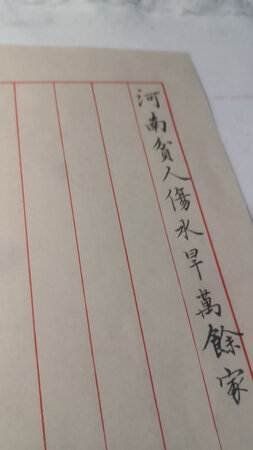 河南貧人傷水旱萬餘家